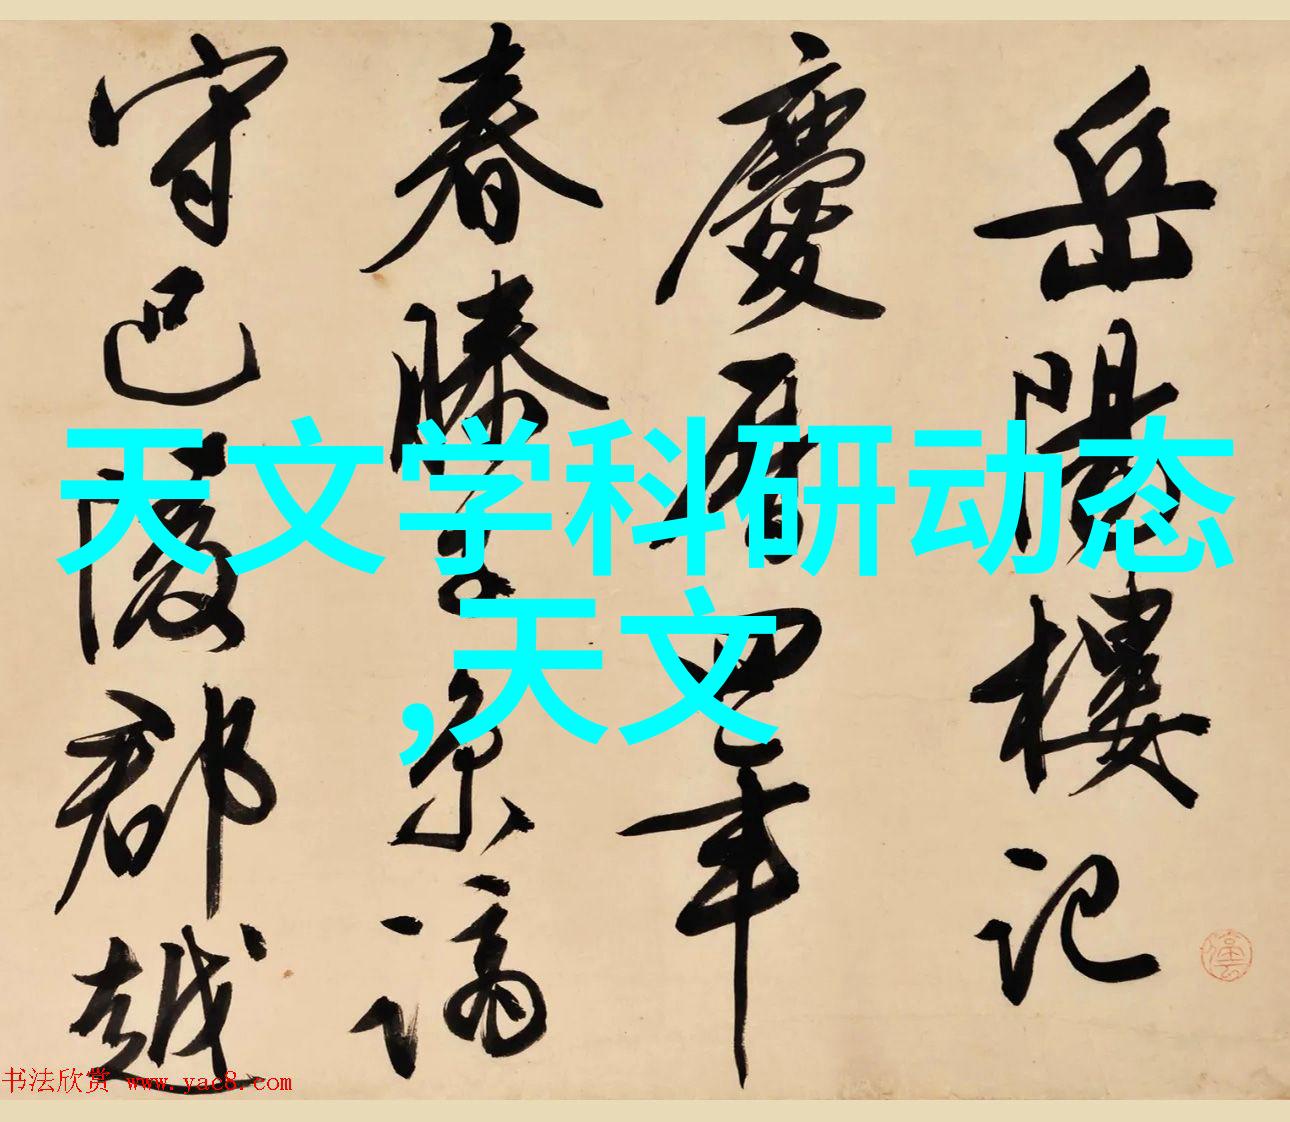 岳陽樓記
慶曆四年
春滕子京謫
守巴陵郡越
天文学科研动态
,天文
书法欣赏 www.yac8.com